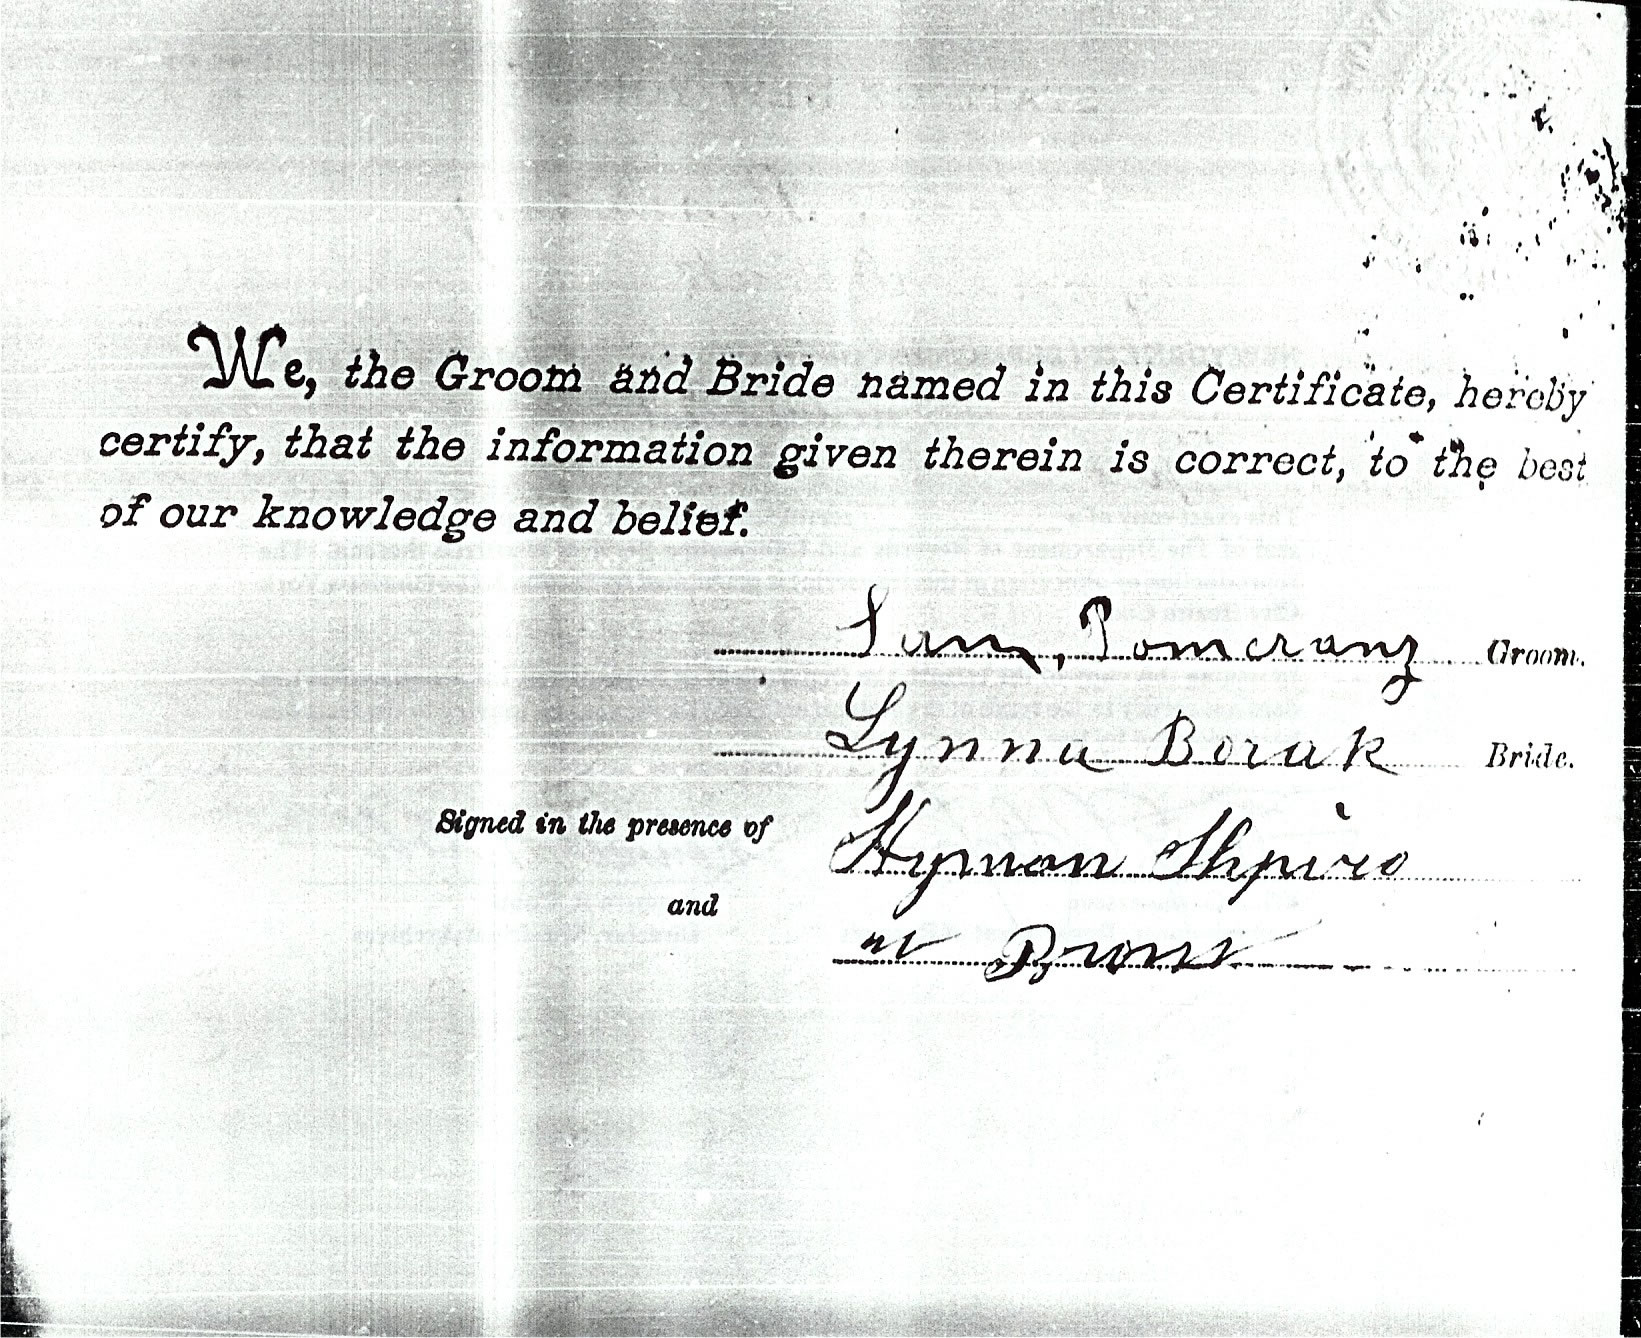 We, the Groom and Bride named in this Certificate, hereby
certify, that the information given therein is correct, to the best
of our knowledge and belief.
Sam, Pomeranz Groom.
Lynna Borak Bride.
Signed in the presence of Hyman Shpiro
and